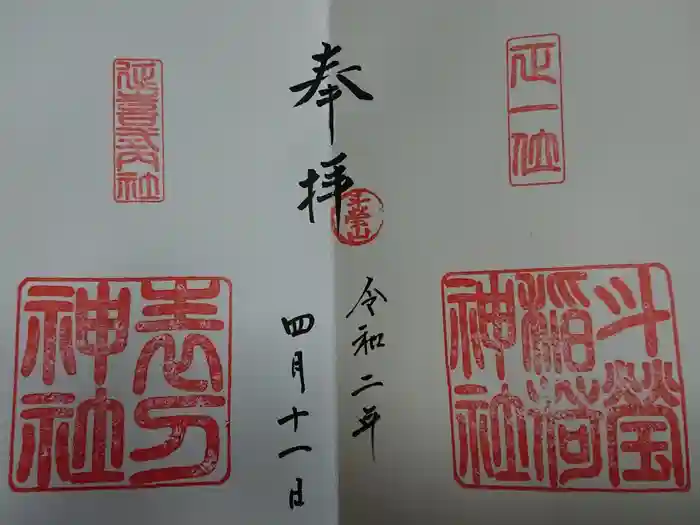 正一位
斗瑩
稲荷
神社
奉拝
斗瑩山
令和二年
四月十一日
延喜式内社
表刀
神社